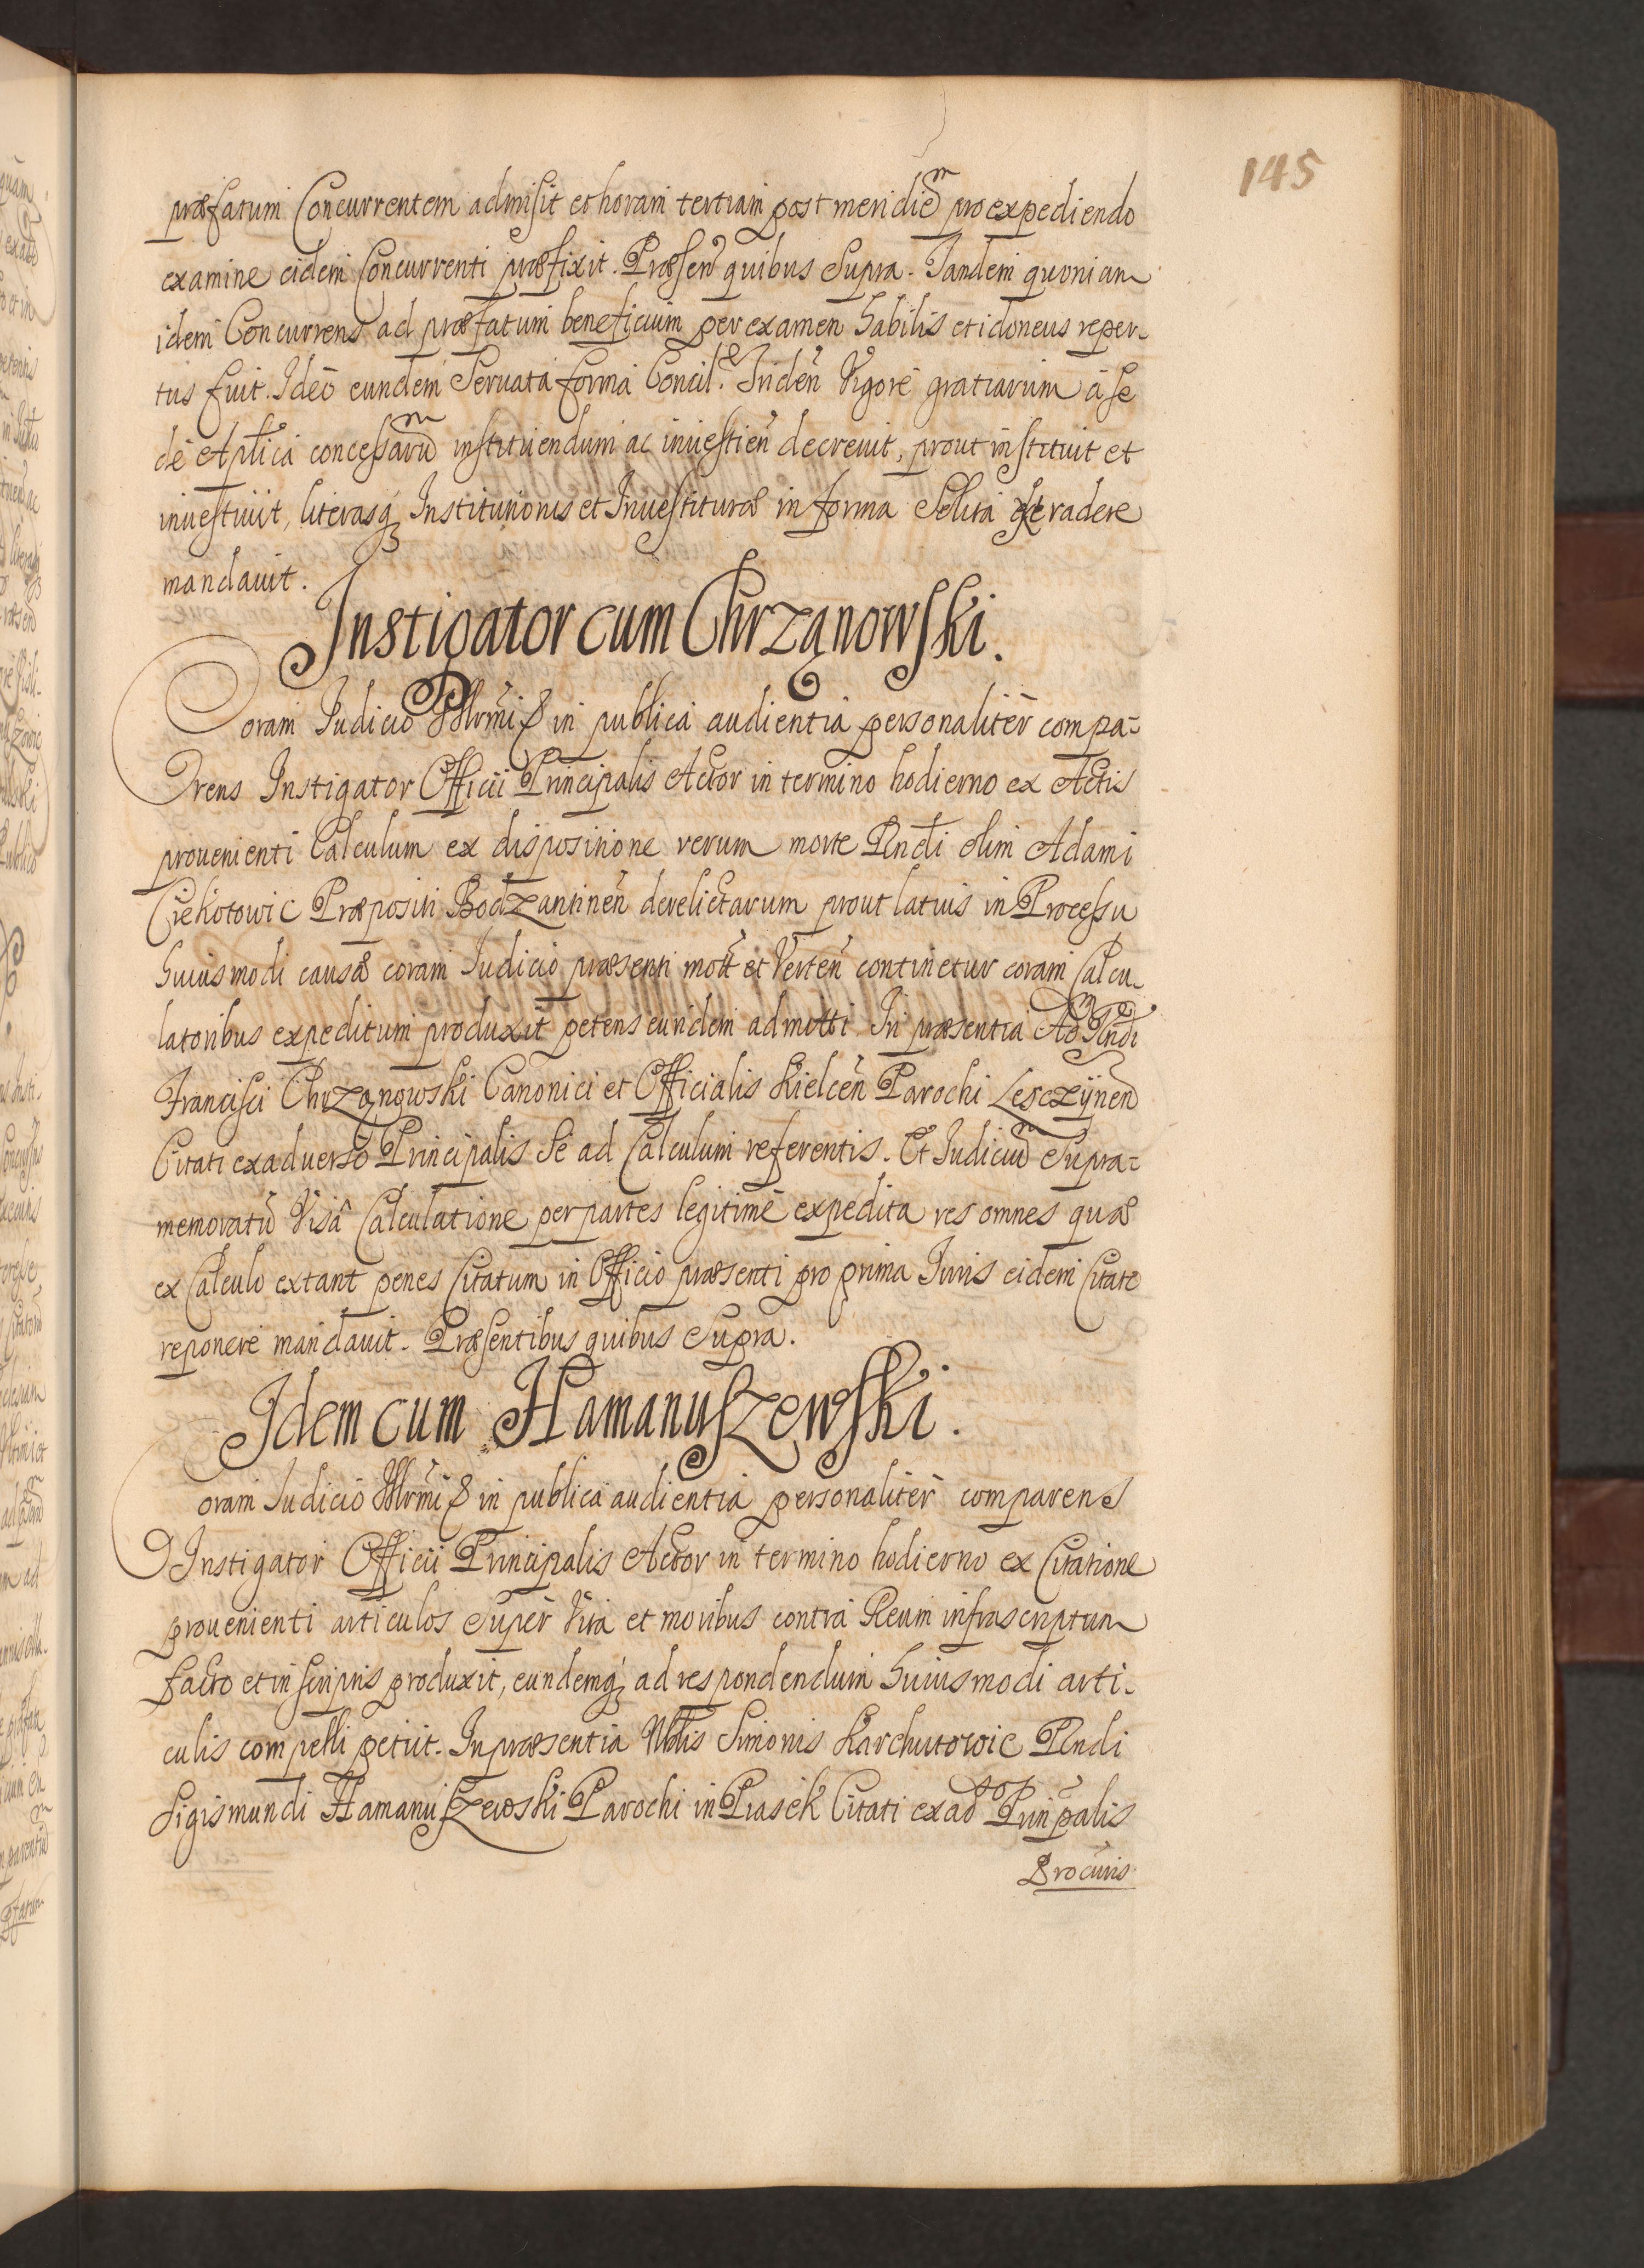 145
præfatum Concurrentem admisit et horam tertiam post meridiem pro expediendo
examine eidem Concurrenti præfixit. Præsen quibus Supra. Tandem quoniam
idem Concurrens ad præfatum beneficium per examen habilis et idoneus reper-
tus fuit. Ideò eundem Servata forma Concil. Triden Vigore gratiarum à Se
de Aplica concessarum instituendum ac inuestien decreuit, prout instituit et
inuestiuit, literasq Institutionis et Inuestituræ in forma Solita extradere
mandauit.
Instigator cum Chrząnowski.
Coram Judicio in publica audientia personaliter compa-
rens Instigator Officii Principalis Actor in termino hodierno ex Actis
prouenienti Calculum ex dispositione rerum morte Rndi olim Adami
Ciekotowic Præpositi Bodzantinen derelictarum prout latius in Processu
huiusmodi causæ coram Judicio præsenti mot et Verten continetur coram Calcu-
latoribus expeditum produxit petens eundem admitti. In præsentia Ad Rndi
Francisci Chrząnowski Canonici et Officialis Kielcen Parochi Lesczÿnen
Citati ex aduerso Principalis Se ad Calculum referentis. Et Judicium Supra-
memoratū Visâ Calculatione per partes legitimè expedita res omnes quæ
ex Calculo extant penes Citatum in Officio præsenti pro prima Juris eidem Citato
reponere mandauit. Præsentibus quibus Supra.
Idem cum Hamanuszewski.
Coram Judicio in publica audientia personaliter comparens
Instigator Officii Principalis Actor in termino hodierno ex Citatione
prouenienti articulos Super Vita et moribus contra Reum infrascriptum
facto et in scriptis produxit, eundemq ad respondendum huiusmodi arti-
culis compelli petiit. In præsentia Nblis Simonis Karchutowic Rndi
Sigismundi Hamanuszewski Parochi in Piasek Citati ex ad Prinpalis
Procuris